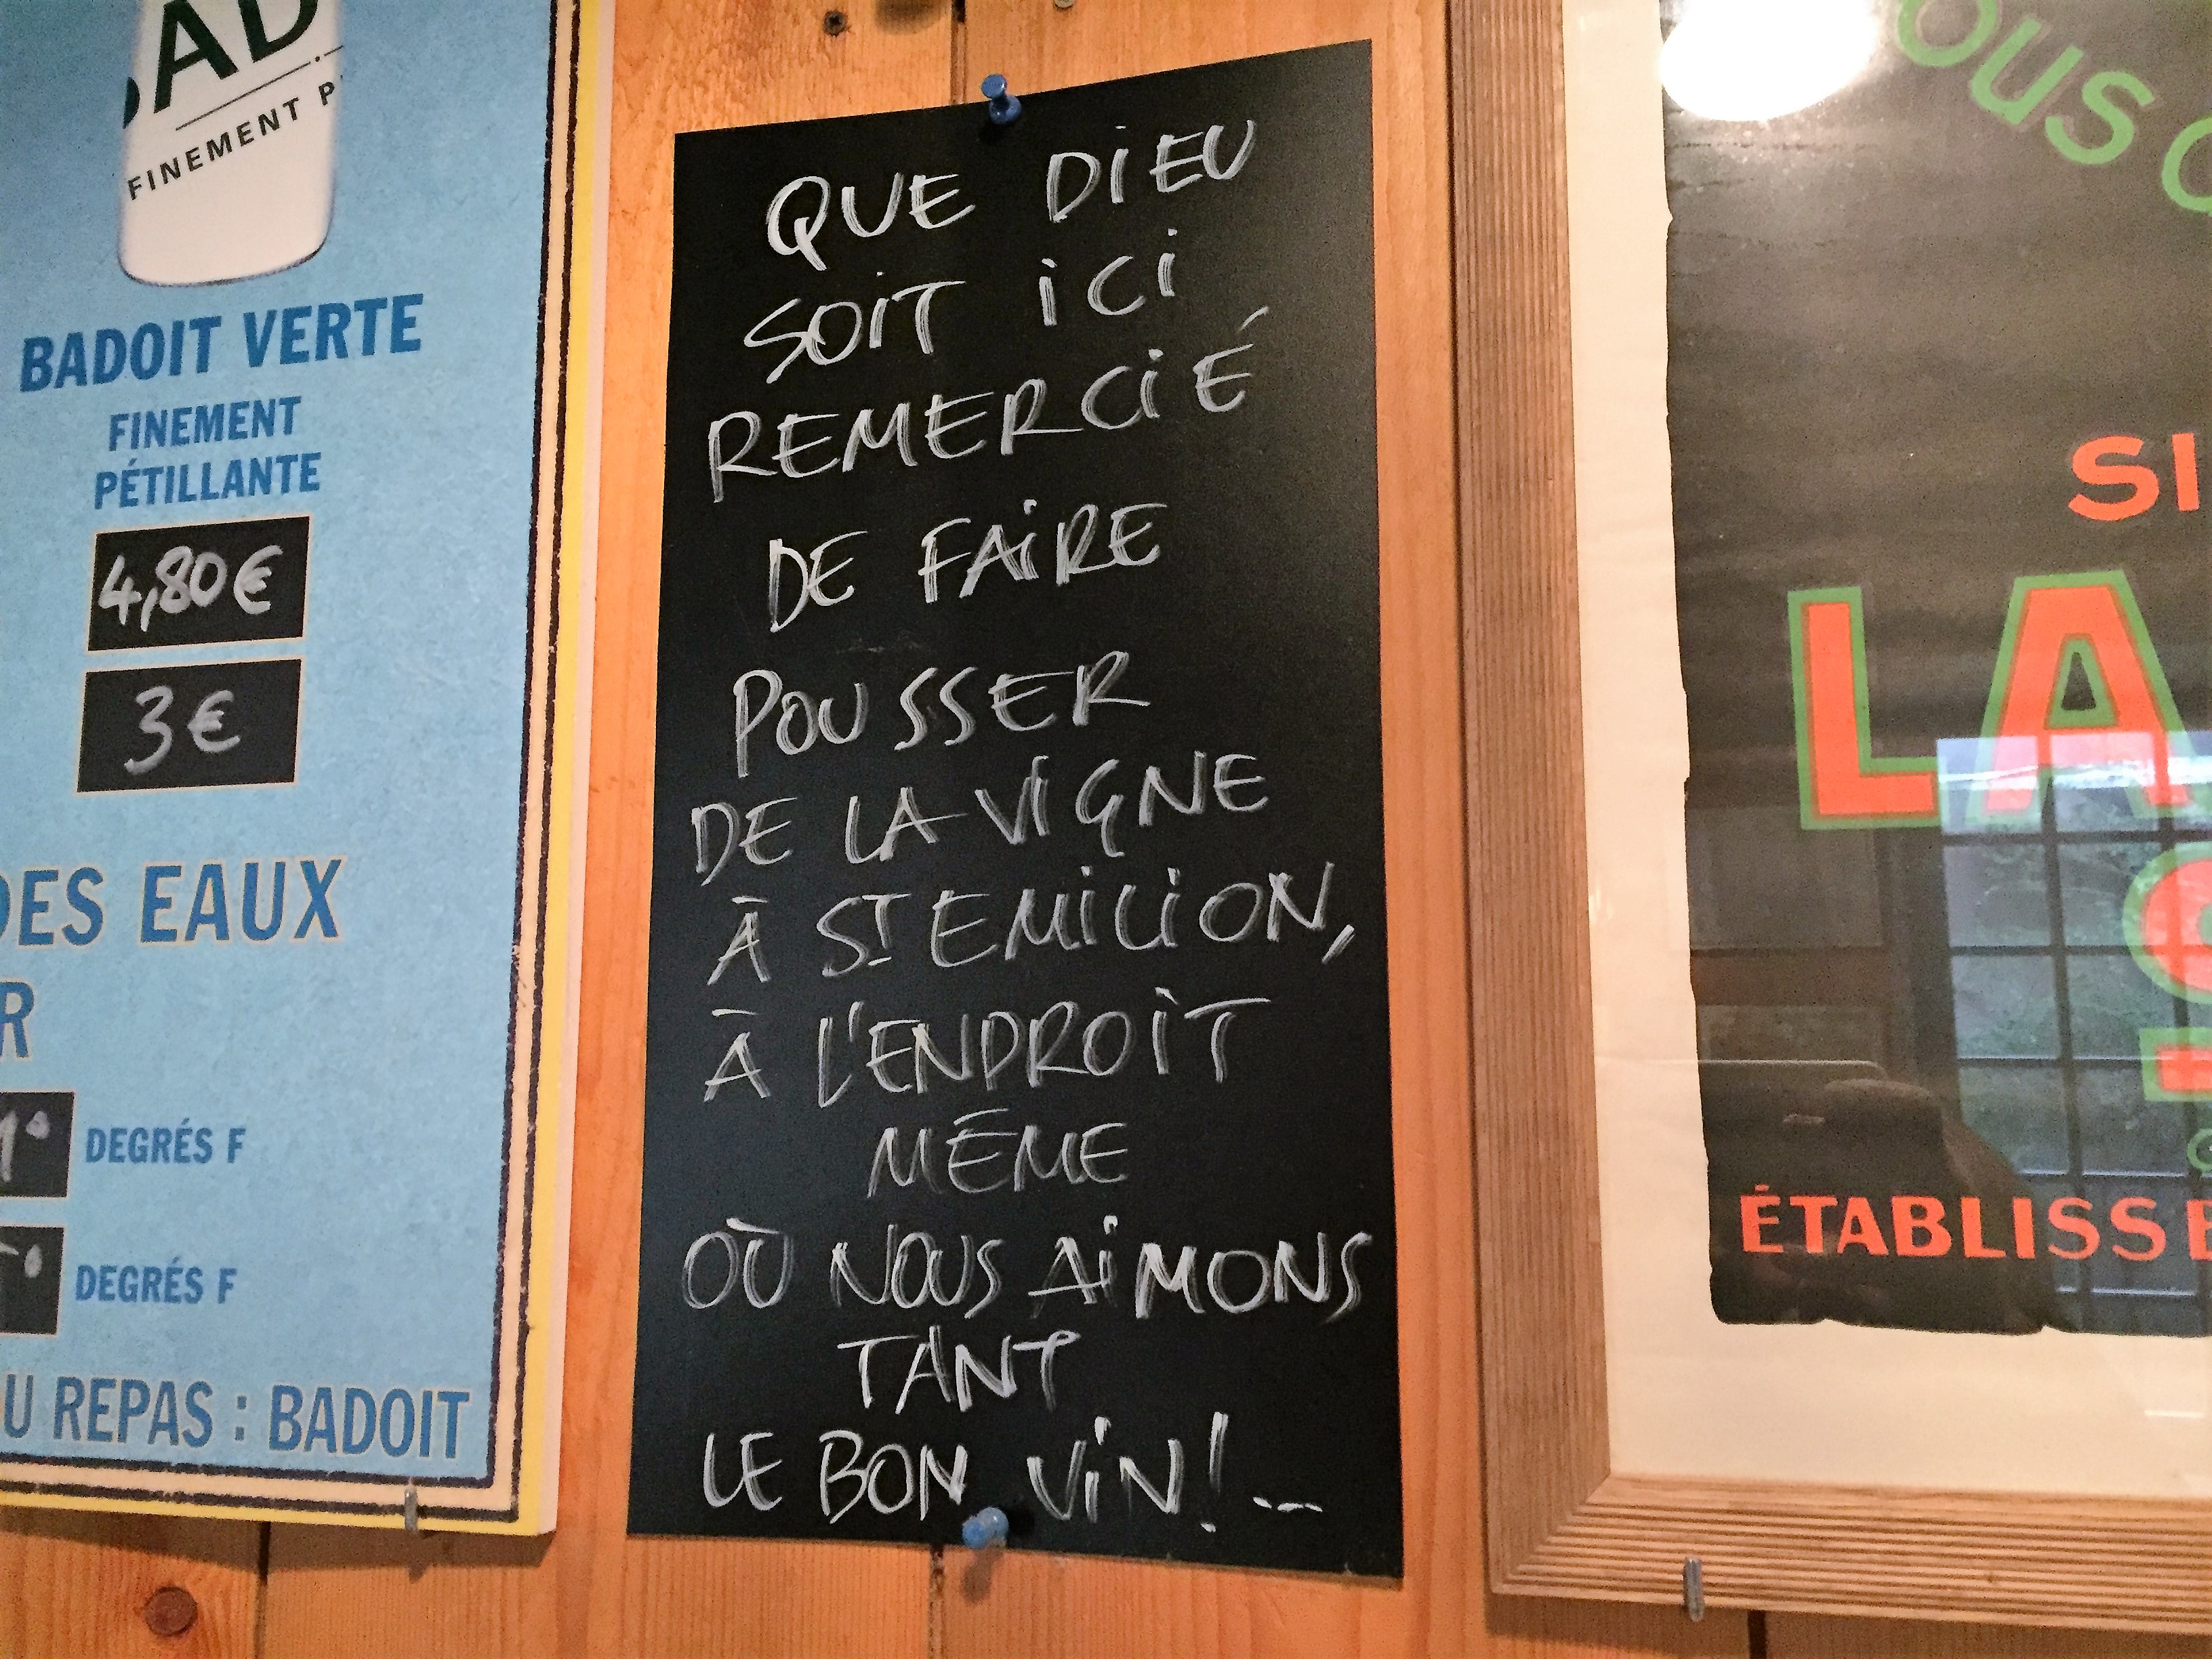 FINEMENT
BADOIT VERTE
FINEMENT
PÉTILLANTE
4,80€
3€
DES EAUX
DEGRÉS F
DEGRÉS F
REPAS : BADOIT
QUE DIEU
SOIT ICI
REMERCIÉ
DE FAIRE
POUSSER
DE LA VIGNE
À ST EMILION,
À L'ENDROIT
MÊME
OÙ NOUS AIMONS
TANT
LE BON VIN!...
SI
LA
ÉTABLISSE